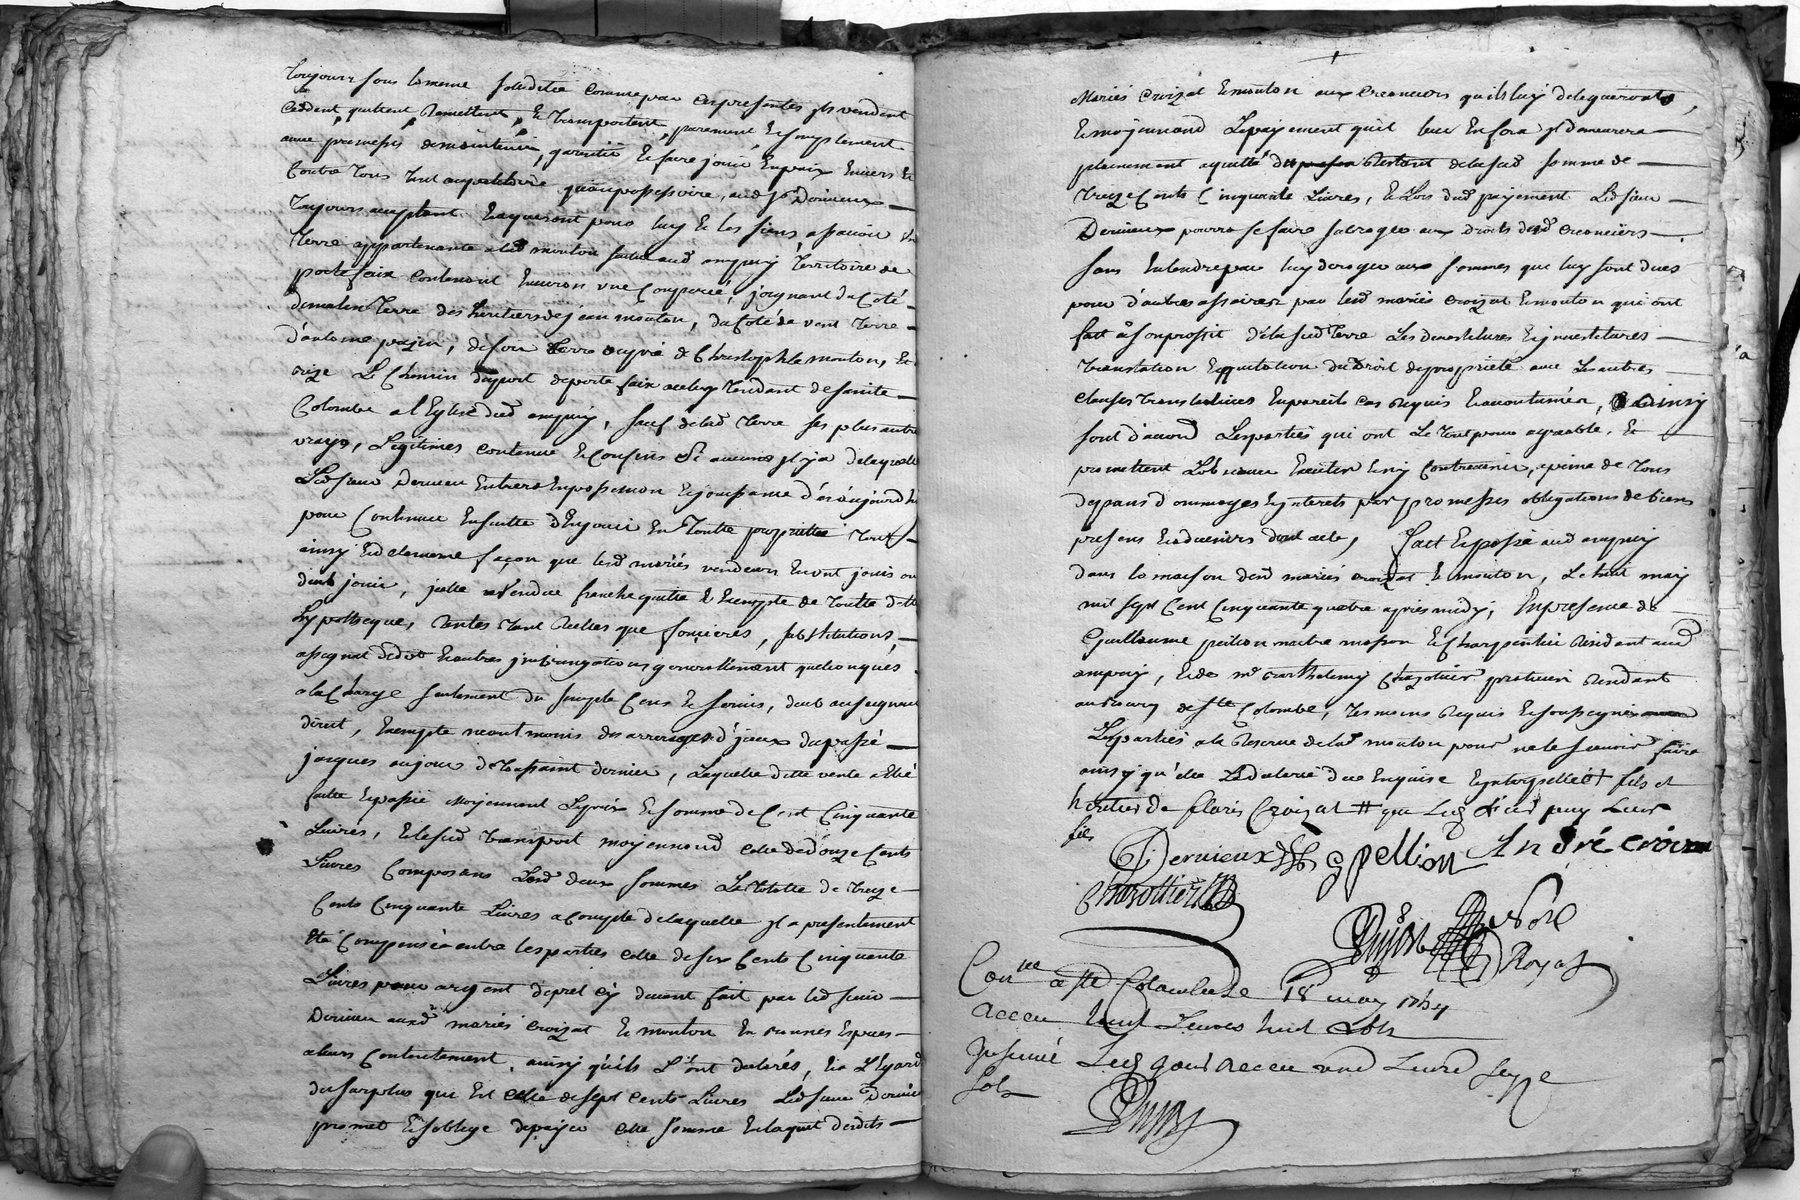 toujours sous la meme solidité comme par ces presentes ils vendent
cedent, quittent Remettent, et transportent, purement et simplement
avec promesse de maintenir, garantir et faire jouir en paix envers et
contre tous tant au petitoire qu'au possessoire, aud Sr Dervieux
toujours acceptant et aquerant pour luy et les siens assavoir une
terre appartenante a lad mouton scituée aud ampuy territoire de
portefaix contenant environ une couperée, joignant du coté
de matin terre des heritiers de jean mouton, du coté de vent terre
d'antoine pazin, de soir terre de Christophle mouton, et
bize le Chemin du port de porte faix tendant de sainte
Colombe a l'Eglise dud ampuy, sauf de lad terre ses plus autres
vrays, legitimes contenue et confins si aucuns il y a de laquelle
led sieur Dervieu entrera en possession et jouissance d'es aujourd'hui
pour continuer ensuitte d'en jouir en toutte proprietté tout
ainsy et de la meme façon que lesd mariés vendeurs en ont jouis ou
deub jouir, icelle vendue franche quitte et exempte de toutte dette
hypotheque, rentes tant Réelles que foncieres, substitutions,
assignat de dot et autres generallement quelconques
a la Charge seulement du simple Cens et servis, deub au seigneur
direct, exempte neantmoins des arrerages d'iceux du passé
jusques au jour de toussaint dernier, laquelle ditte vente a été
faitte et passée moyennant le prix et somme de Cent Cinquante
Livres, et lesud transport moyennand celle de douze Cents
Livres composans lesd deux sommes la totalle de treize
Cents Cinquante Livres a compte de laquelle il a presentement
eté compensée entre les parties celle de six Cents Cinquante
Livres pour argent de pret cy devant fait par led sieur
Dervieu auxd mariés croizat et mouton en bonnes especes
a leurs contentement, ainsy qu'ils l'ont declarés, et a l'égard
du surplus qui est celle de sept cents Livres led sieur Dervieu
promet et s'oblige de payer cette somme en l'aquit desdits
mariés croizat et mouton aux creanciers qu'ils luy delegueront,
et moyennand le payement qu'il leur en fera il demeurera
pleinement aquitté du Restant de lasud somme de
treize Cents Cinquante Livres, et lors dud payement led sieur
Dervieux pourra se faire subroger aux droits desd creanciers
sans entendre par luy deroger aux sommes que luy sont dues
pour d'autres affaires par lesd mariés croizat et mouton qui ont
fait a son proffit de lasud terre les devestitures et investitures
translation et quitation du droit de proprieté avec les autres
clauses translatives en pareils cas requis et accoutumées, ainsy
sont d'accord les parties qui ont le tout pour agreable, et
promettent l'observer executer et n'y contrevenir, a peine de tous
depans dommages et interets par promesses obligations de biens
presens et advenirs dont acte, fait et passé aud ampuy
dans la maison desd mariés croizat et mouton, le huit may
mil sept Cent Cinquante quatre apres midy, en presence de
Guillaume pellion maitre masson et Charpentier Residant aud
ampuy, et de mr Barthelemy Chazottier praticien Residant
au bourg de ste Colombe, temoins requis et soussignés
Les parties a la Reserve de lad mouton pour ne le sçavoir faire
ainsy qu'elle l'a declaré due enquise et interpellée + fils et
heritier de Claris Croizat # que led leur
fils
Dervieux G pellion André croizat
Chazottier
Dujast
Con.lée a ste Colombe le 18 may 1754
Receu huit Livres huit sols
insinué Led jour Receu une Livre seize
sols
Dujast